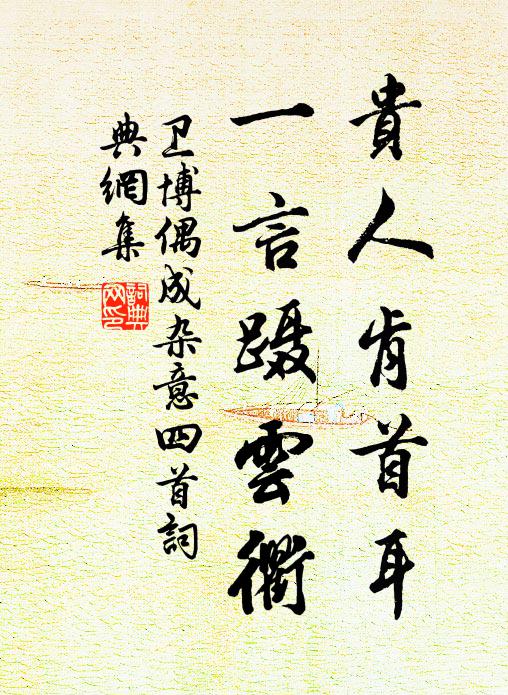 貴人肯首耳
一言蹑雲衢
卫博偶成杂意四首詞
典網集
詞典
网印